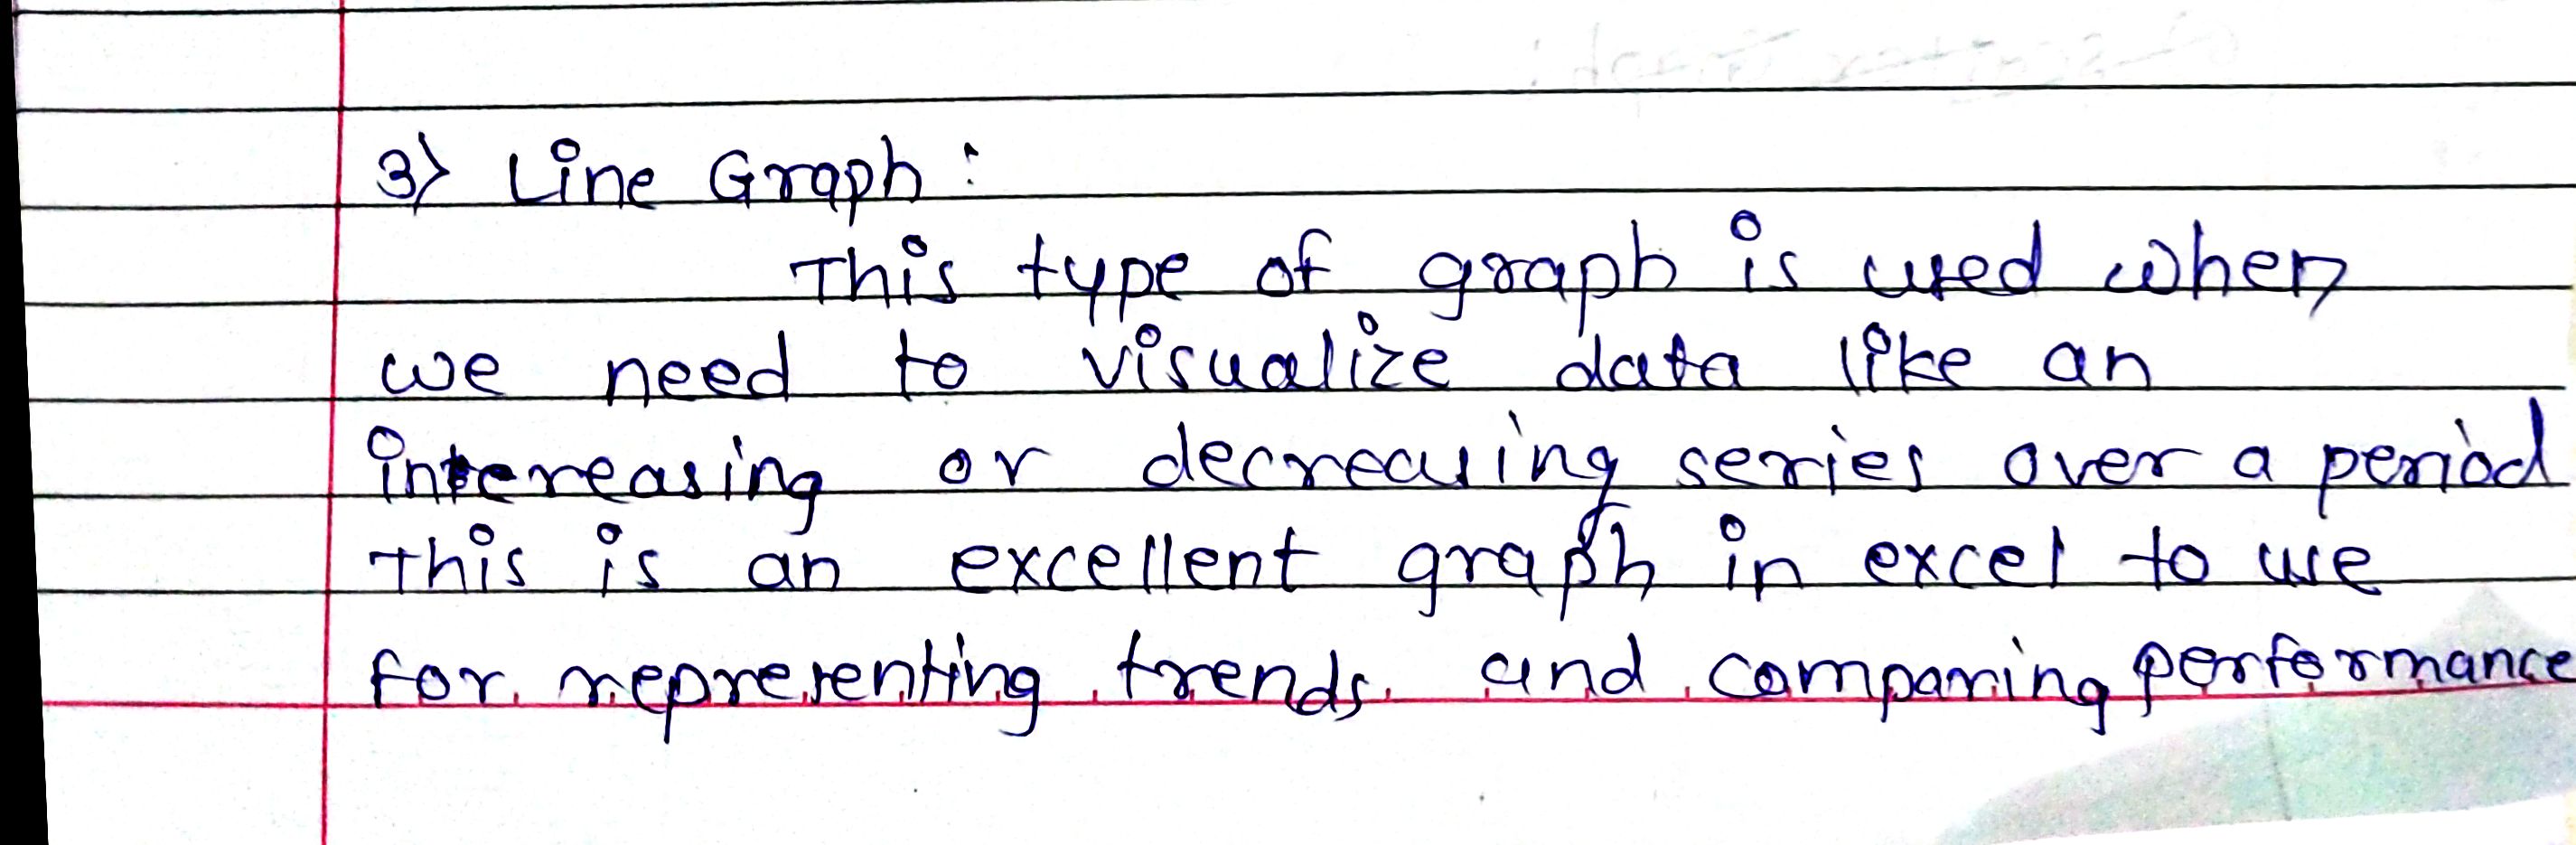 3) Line Graph :
This type of graph is used when
we need to visualize data like an
intereasing or decreasing series over a period
This is an excellent graph in excel to use
for representing trends and comparing performance